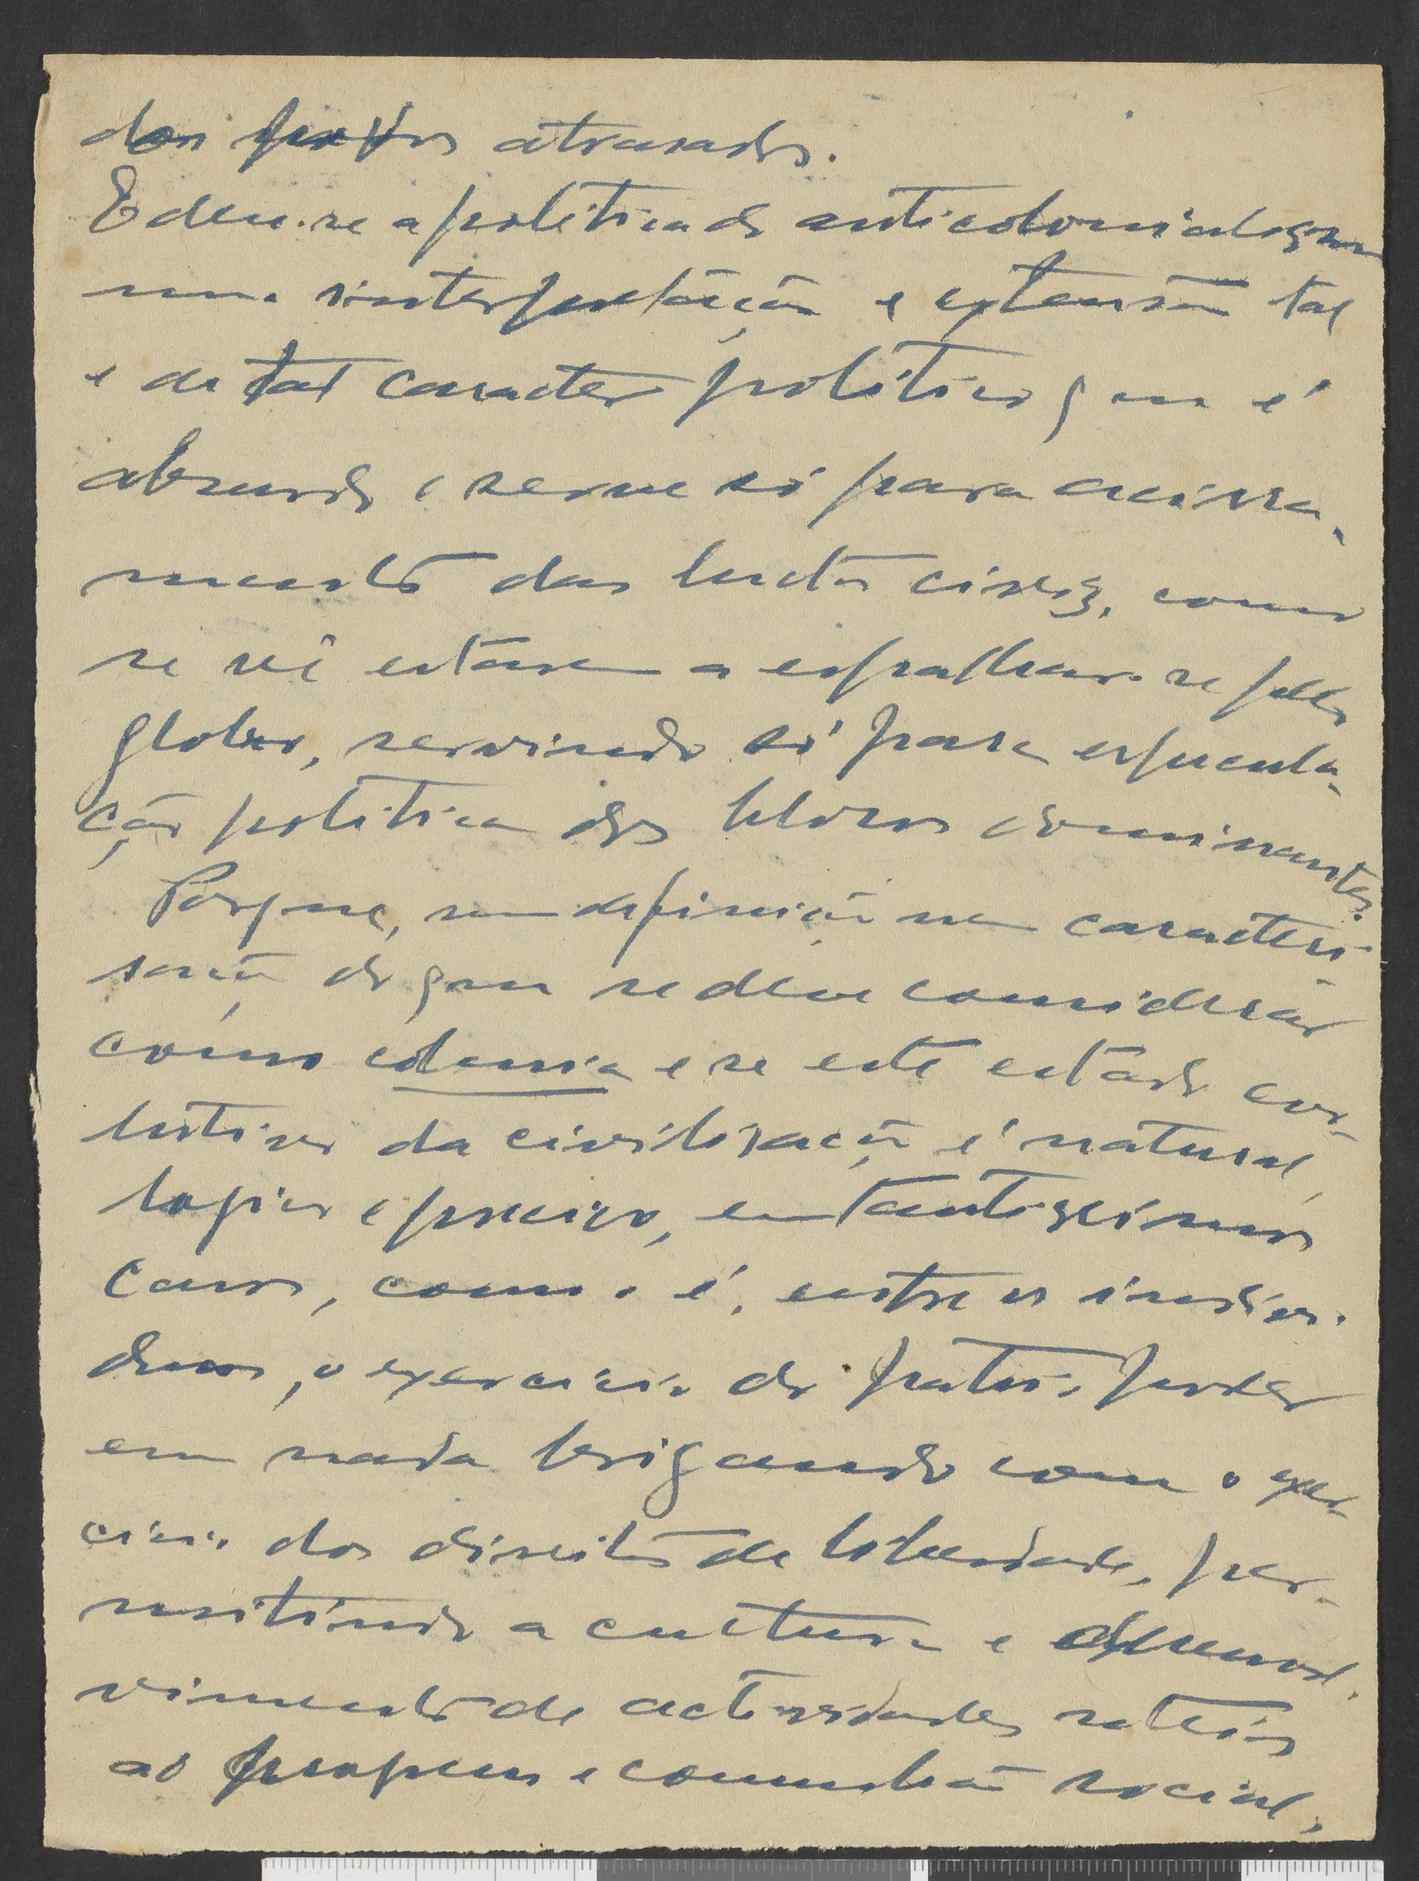 dos povos atrasados.
E deu-se a politica do anticolonialismo
uma interpretação e extensão tal
e de tal caracter politico que é
absurdo e serve só para acirra-
mento das luctas civis, como
se vê estarem a espalhar-se pelo
globo, servindo só para especula-
ção politica dos blocos dominantes.
Porque, sem definição nem caracteri-
sação do que se deve considerar
como colonia e se este estado evo-
lutivo da civilisação é natural,
logico e preciso, em tantissimos
casos, como o é, entre os indivi-
duos, o exercicio do patrio poder
em nada brigando com o exer-
cicio dos direitos de liberdade, per-
mitindo a cultura e desenvol-
vimento de actividades uteis
ao progresso e comunhão social,